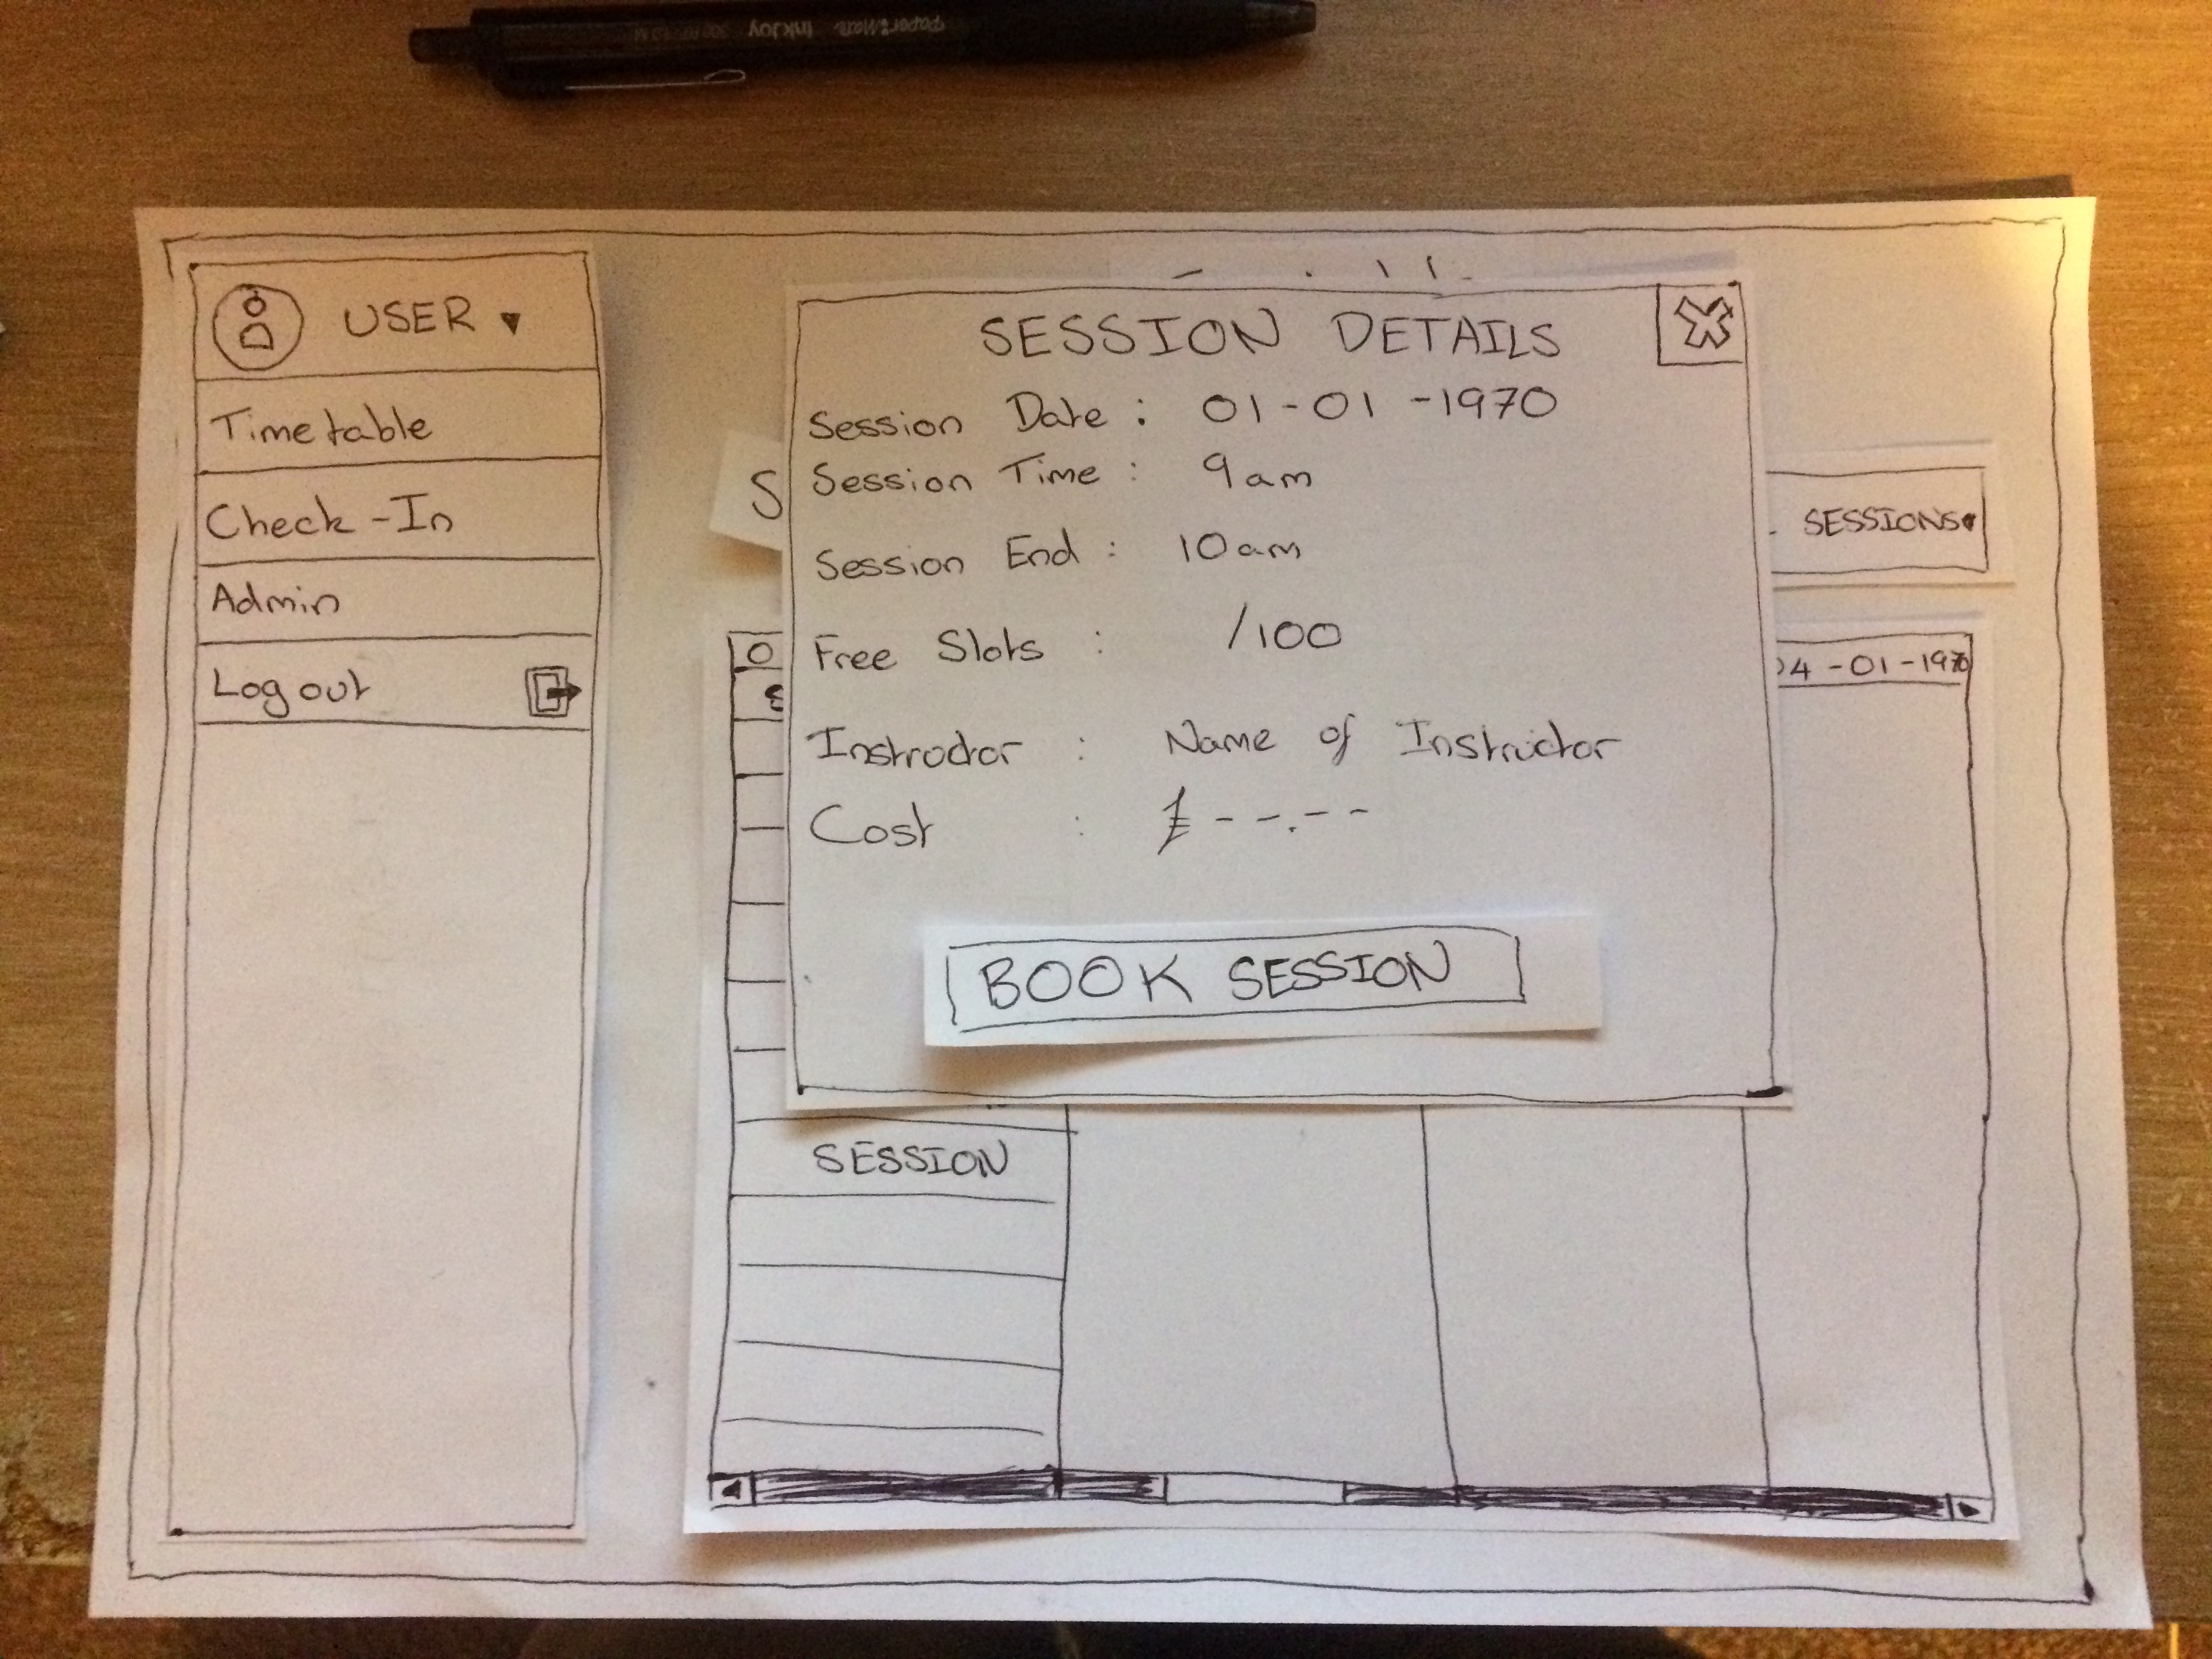 PaperMate InkJoy
USER
Timetable
Check-In
Admin
Log out
SESSION DETAILS
Session Date : 01-01-1970
Session Time : 9am
Session End : 10am
Free Slots : /100
Instructor : Name of Instructor
Cost : £--.--
BOOK SESSION
S
SESSIONS
04-01-1970
SESSION